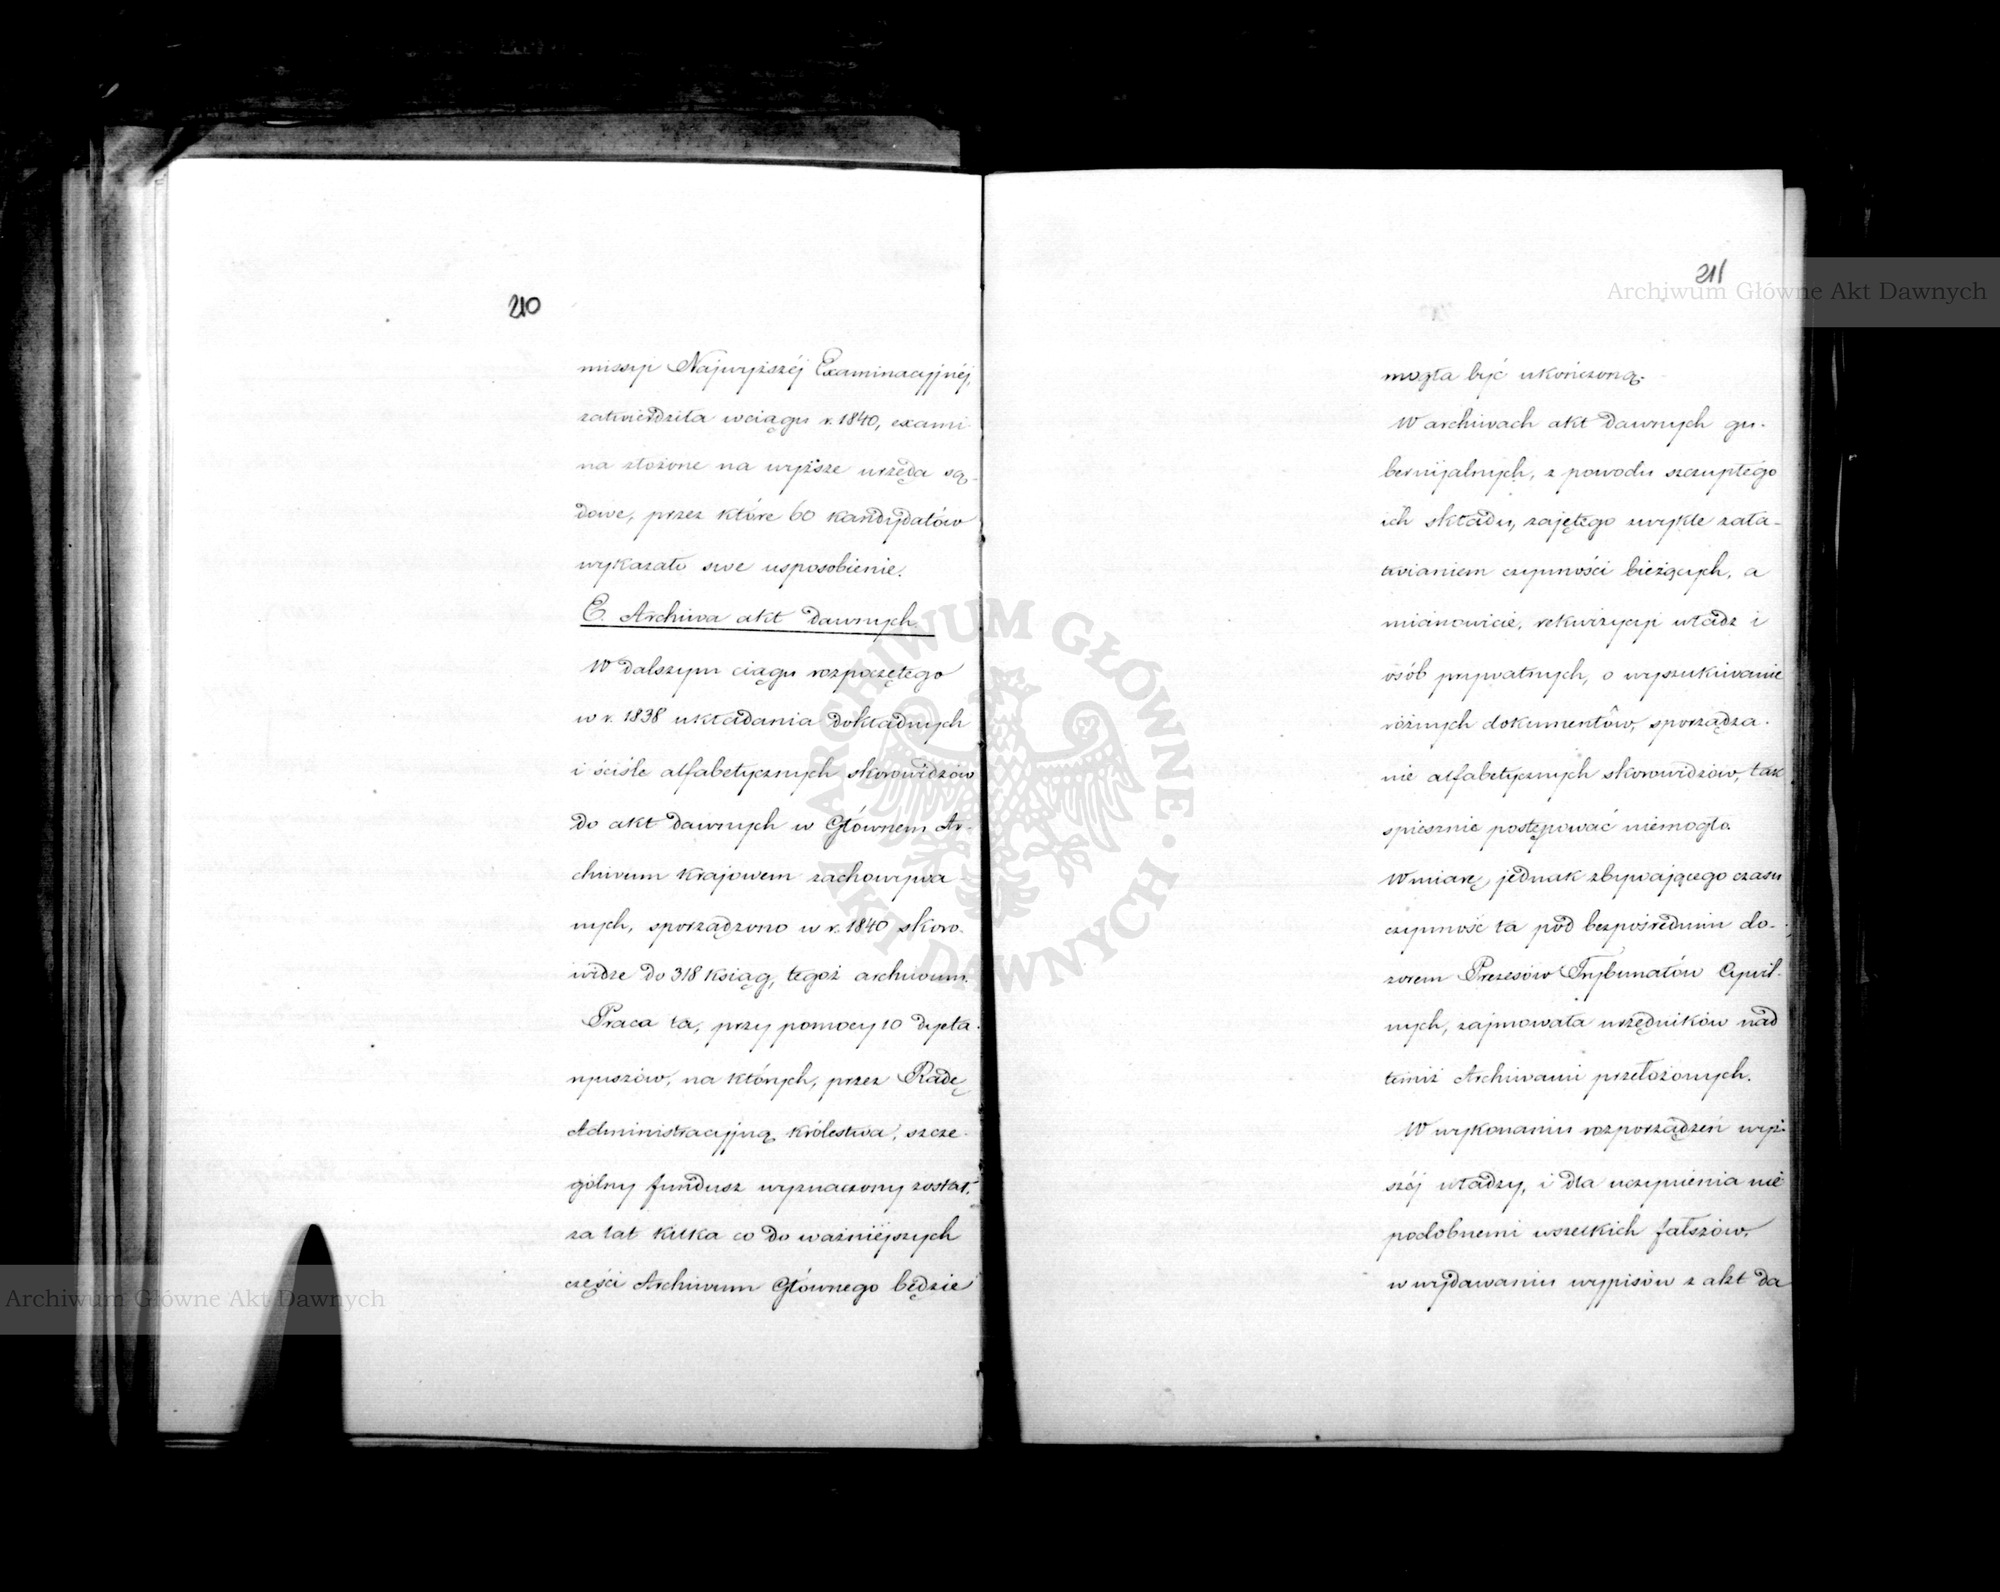 210
missyi Najwyższéj Examinacyjnéj,
zatwierdziła wciągu r. 1840, exami-
na złożone na wyższe urzęda są-
dowe, przez które 60 kandydatów
wykazało swe usposobienie.
E. Archiwa akt dawnych.
W dalszym ciągu rozpoczętego
w r. 1838 układania dokładnych
i ściśle alfabetycznych skorowidzów
do akt dawnych w Głównem Ar-
chivum krajowem zachowywa-
nych, sporządzono w r. 1840 skoro-
widze do 318 ksiąg, tegoż archivum.
Praca ta, przy pomocy 10 dyeta-
ryuszów, na których, przez Radę
Administracyjną królestwa, szcze-
gólny fundusz wyznaczony został,
za lat kilka co do ważniejszych
części Archivum Głównego będzie
211
mogła być ukończoną.
W archiwach akt dawnych gu-
bernijalnych, z powodu szczupłego
ich składu, zajętego zwykle zała-
twianiem czynności bieżących, a
mianowicie, rekwizycyi władz i
osób prywatnych, o wyszukiwanie
różnych dokumentów, sporządza-
nie alfabetycznych skorowidzów, tak
spiesznie postępować niemogło.
W miarę jednak zbywającego czasu
czynność ta pod bezpośrednim do-
zorem Prezesów Trybunałów Cywil-
nych, zajmowała urzędników nad
temiż Archiwami przełożonych.
W wykonaniu rozporządzeń wyż-
széj władzy, i dla uczynienia nie
podobnemi wszelkich fałszów,
w wydawaniu wypisów z akt da
Archiwum Główne Akt Dawnych
Archiwum Główne Akt Dawnych
ARCHIWUM GŁÓWNE · AKT DAWNYCH ·